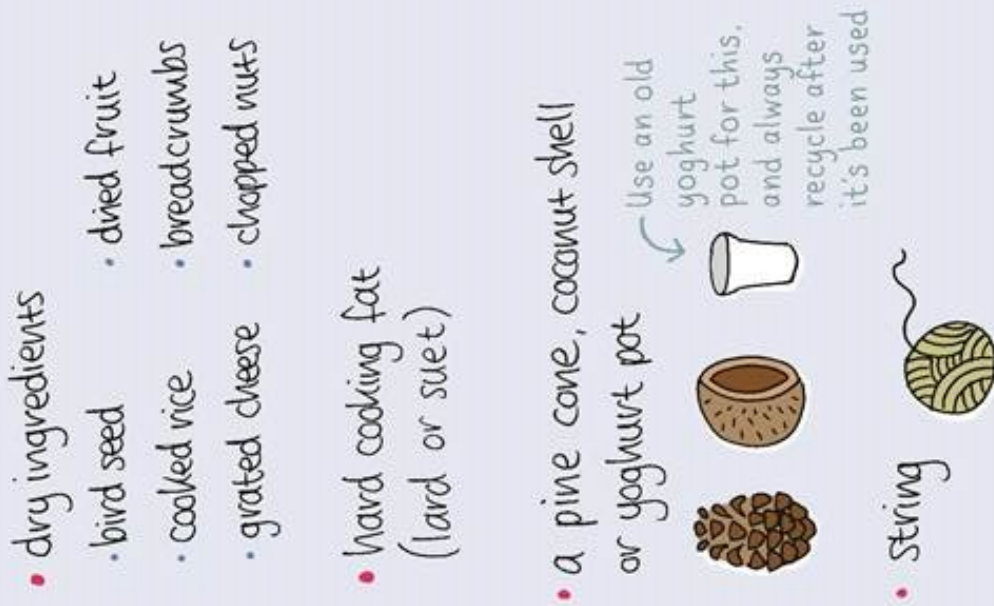 • dry ingredients
• bird seed
• dried fruit
• cooked rice
• breadcrumbs
• grated cheese
• chopped nuts
• hard cooking fat
(lard or suet)
• a pine cone, coconut shell
or yoghurt pot
Use an old
yoghurt
pot for this,
and always
recycle after
it's been used
• string